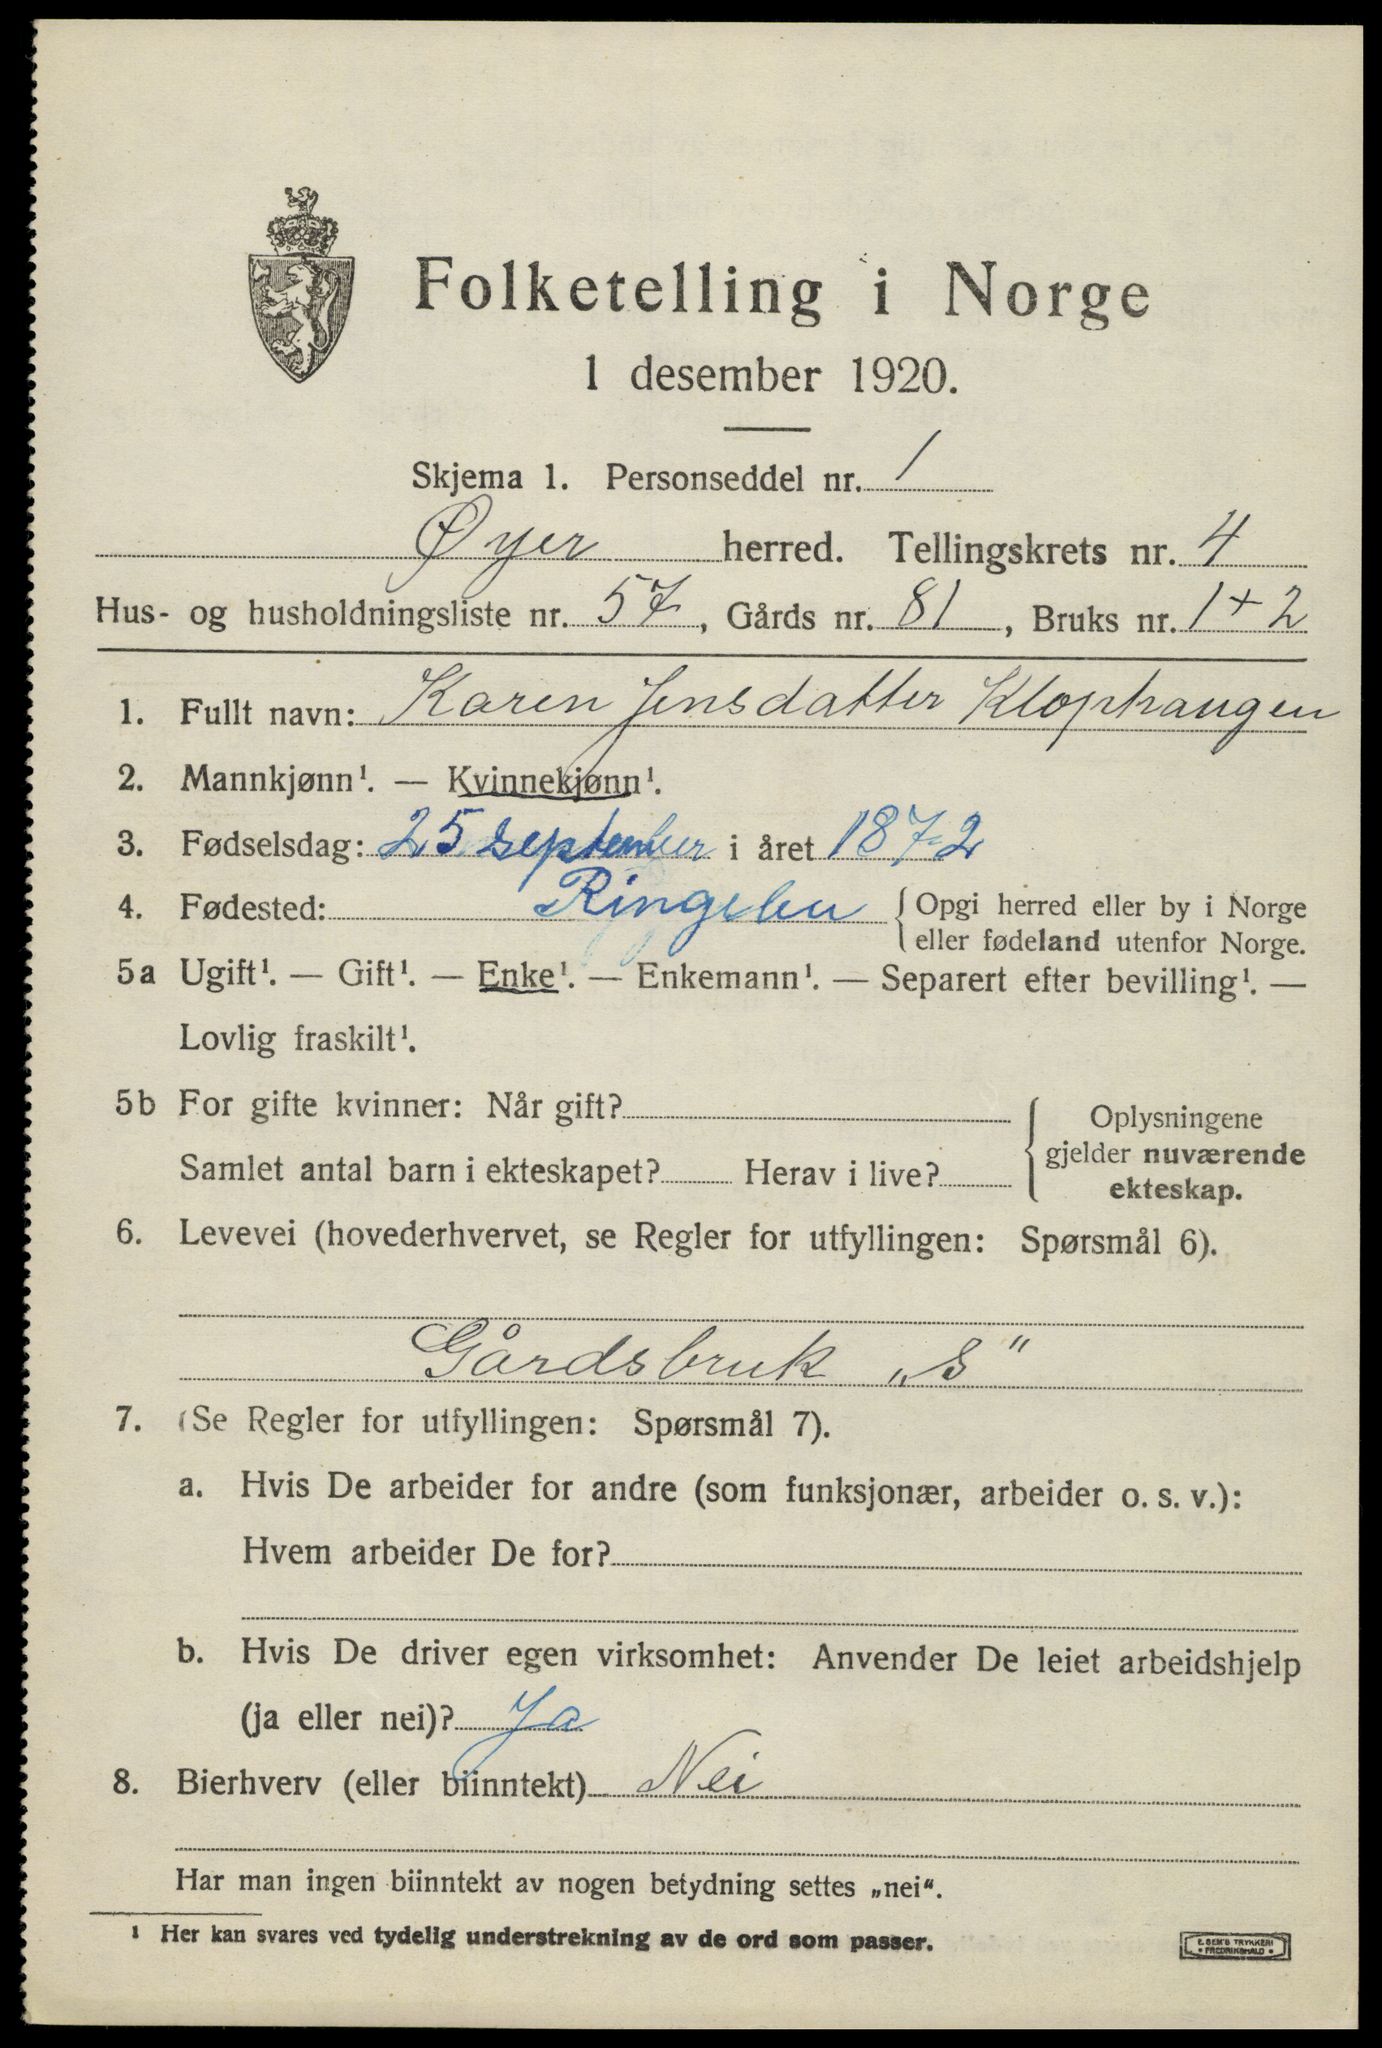 Folketelling i Norge
1 desember 1920.
Skjema 1. Personseddel nr. 1
Øyer herred. Tellingskrets nr. 4
Hus- og husholdningsliste nr. 57, Gårds nr. 81, Bruks nr. 1+2
1. Fullt navn: Karen Jensdatter Klophaugen
2. Mannkjønn¹. — Kvinnekjønn¹.
3. Fødselsdag: 25 september i året 1872
4. Fødested: Ringebu { Opgi herred eller by i Norge
eller fødeland utenfor Norge.
5a Ugift¹. — Gift¹. — Enke¹. — Enkemann¹. — Separert efter bevilling¹. —
Lovlig fraskilt¹.
5b For gifte kvinner: Når gift?
Samlet antal barn i ekteskapet? Herav i live?
{ Oplysningene
gjelder nuværende
ekteskap.
6. Levevei (hovederhvervet, se Regler for utfyllingen: Spørsmål 6).
Gårdsbruk „S“
7. (Se Regler for utfyllingen: Spørsmål 7).
a. Hvis De arbeider for andre (som funksjonær, arbeider o. s. v.):
Hvem arbeider De for?
b. Hvis De driver egen virksomhet: Anvender De leiet arbeidshjelp
(ja eller nei)? Ja
8. Bierhverv (eller biinntekt) Nei
Har man ingen biinntekt av nogen betydning settes „nei“.
¹ Her kan svares ved tydelig understrekning av de ord som passer.
E. SEM'S TRYKKERI
• FREDRIKSHALD •